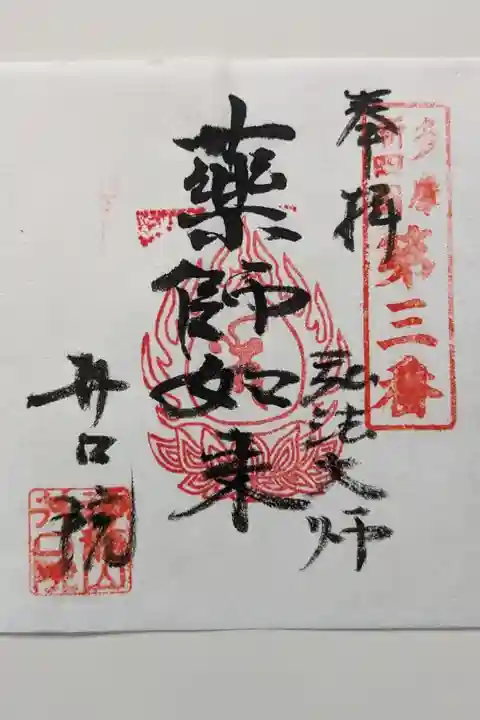 多摩
新四国
第三番
奉拝
弘法大師
藥師如来
井口院